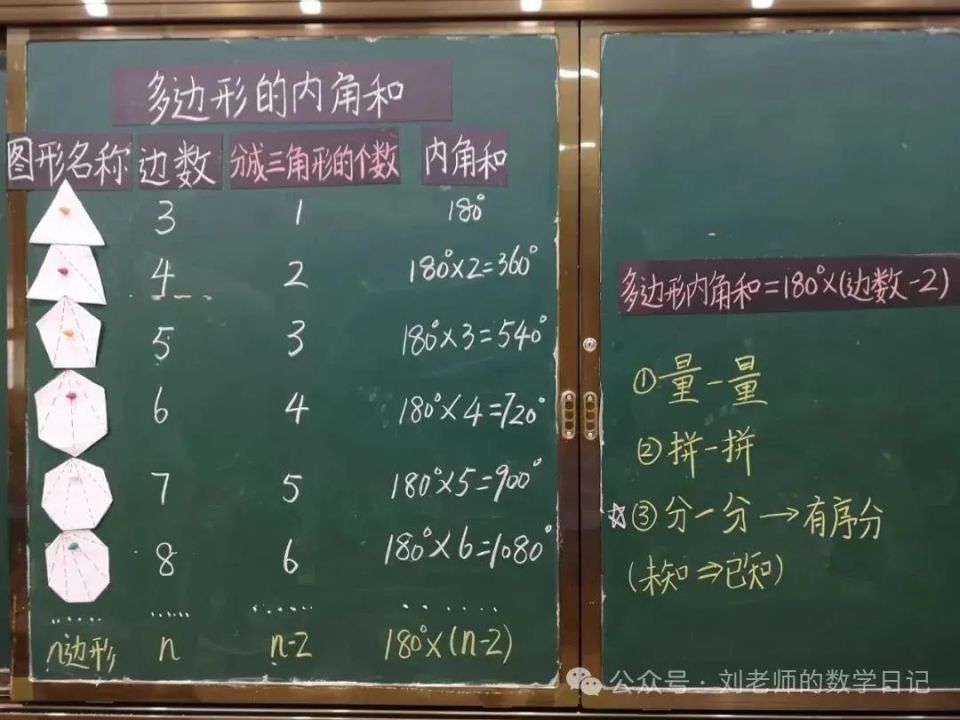 多边形的内角和
图形名称 边数 分成三角形的个数 内角和
3 1 180°
4 2 180°×2=360°
5 3 180°×3=540°
6 4 180°×4=720°
7 5 180°×5=900°
8 6 180°×6=1080°
…… …… …… ……
n边形 n n-2 180°×(n-2)
多边形内角和=180°×(边数-2)
①量一量
②拼一拼
☆③分一分→有序分
(未知⇒已知)
公众号·刘老师的数学日记